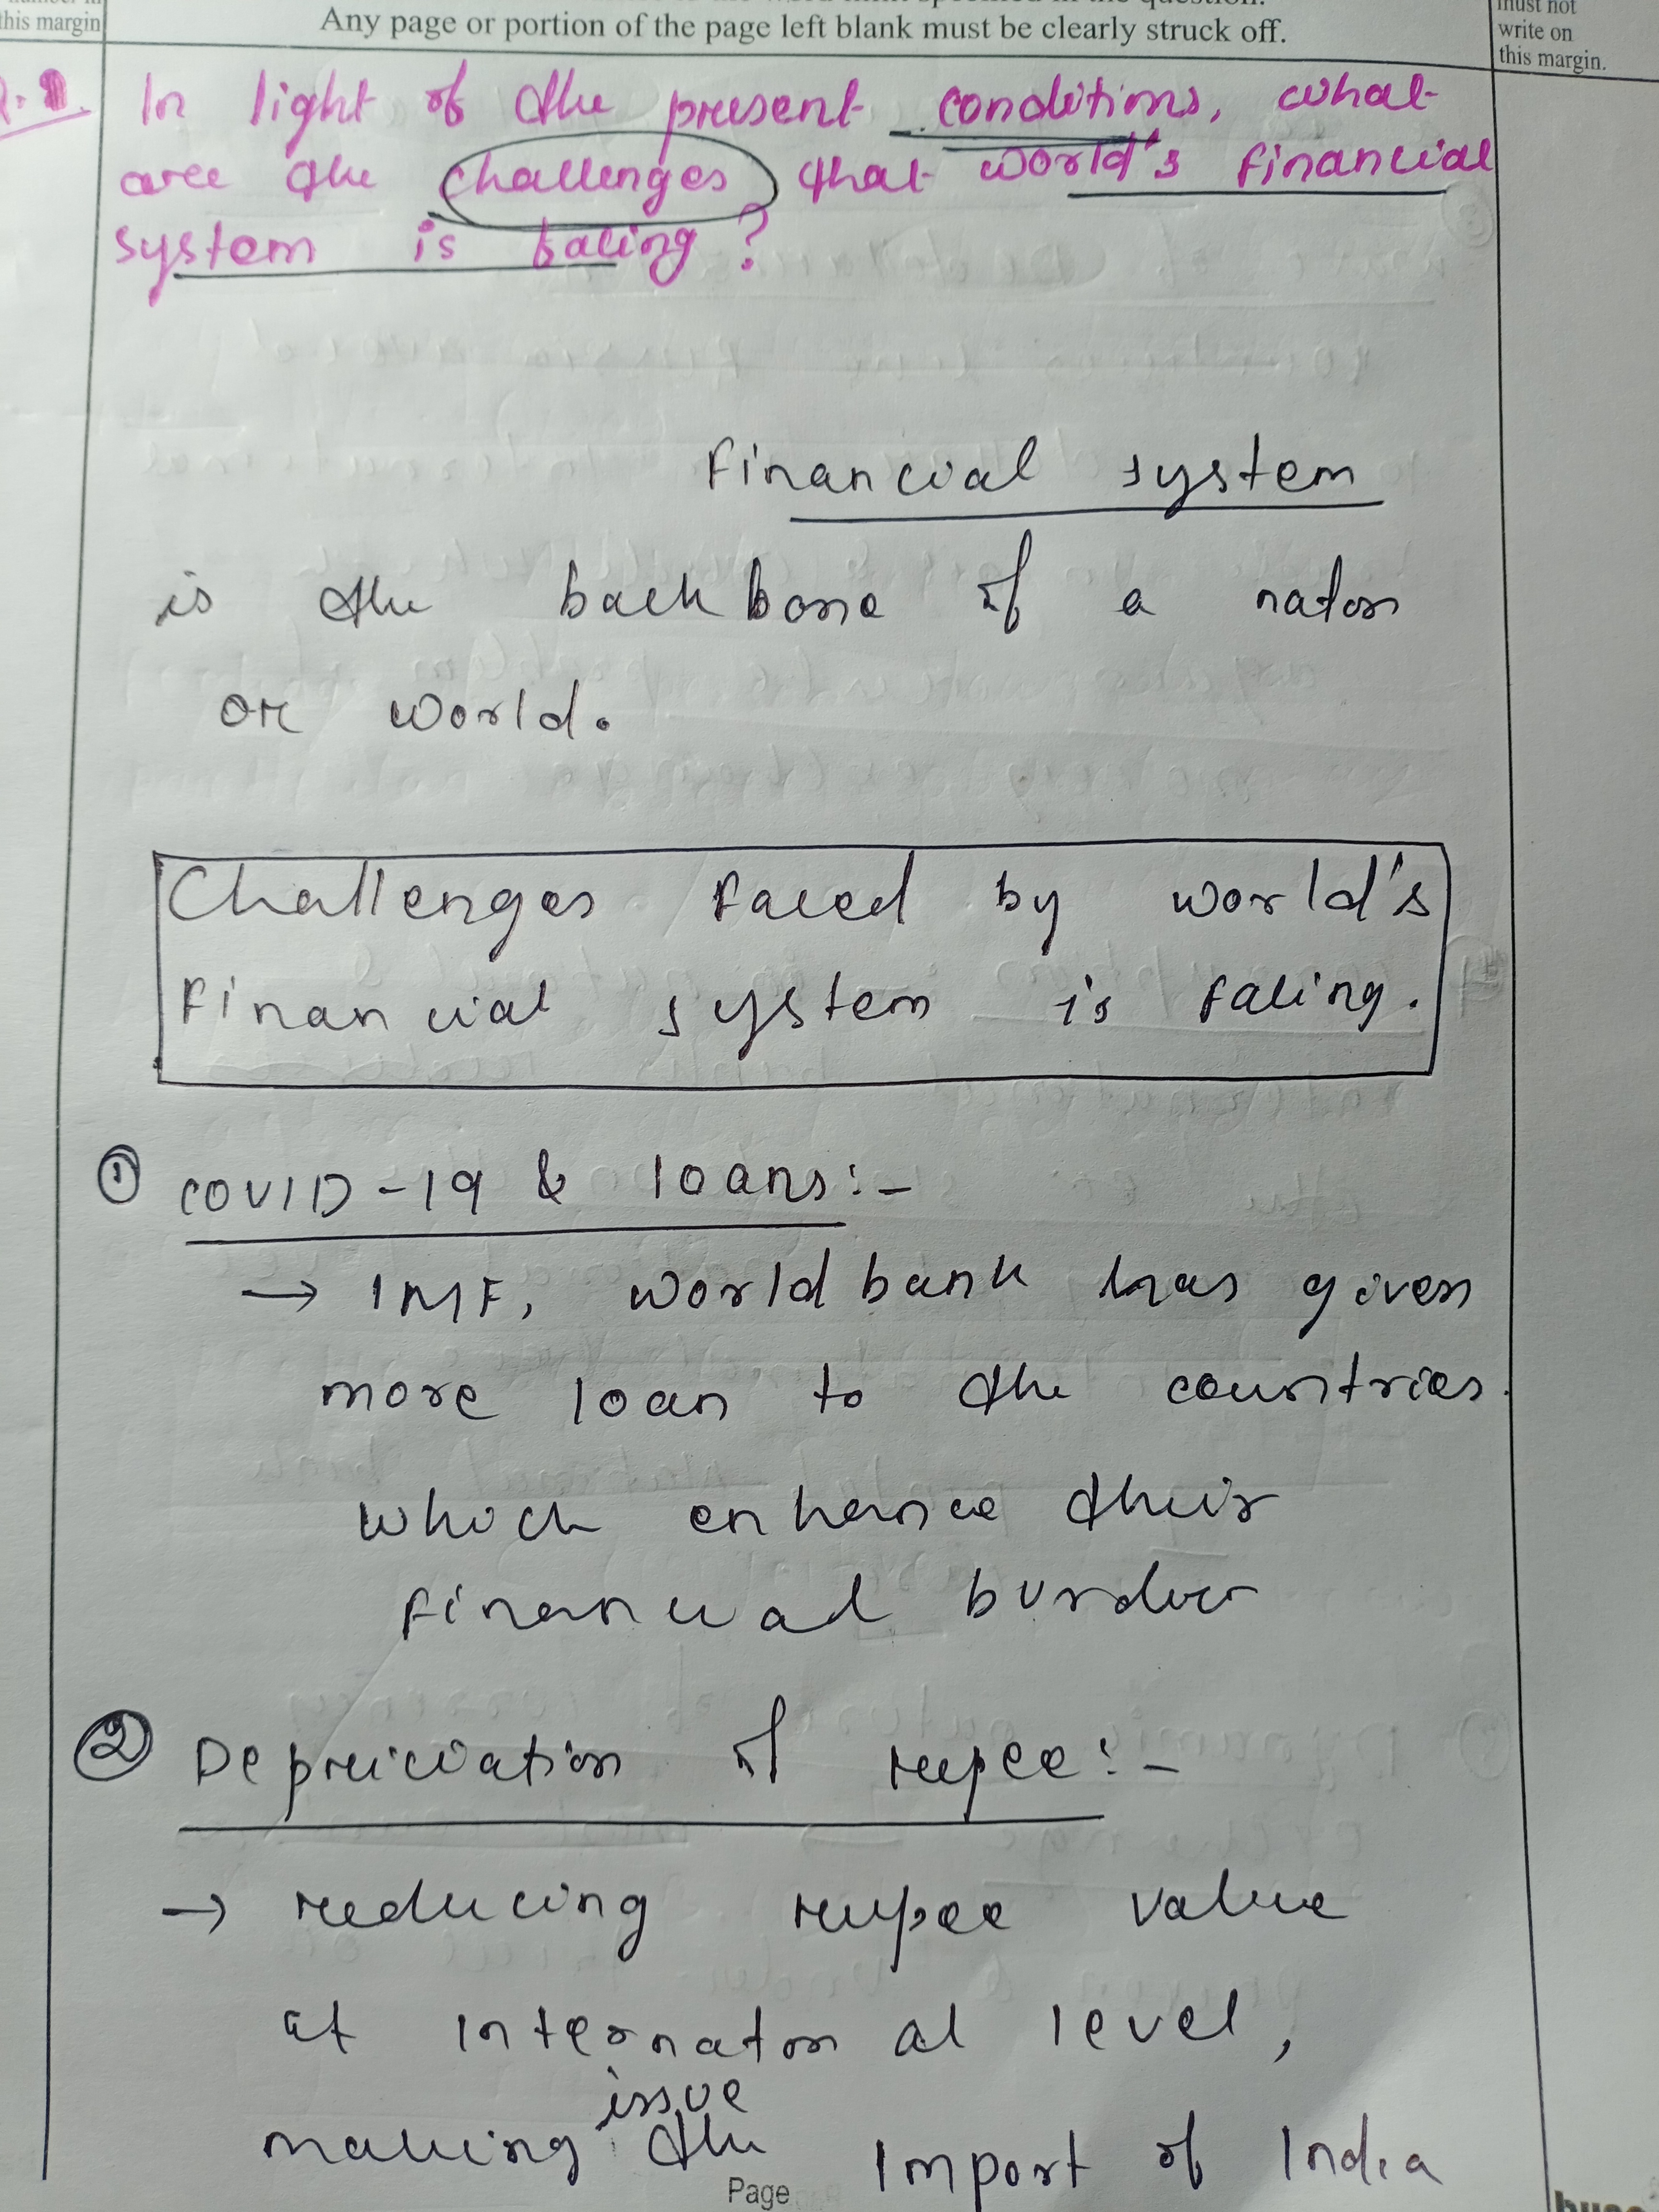 this margin
Any page or portion of the page left blank must be clearly struck off.
must not
write on
this margin.
In light of the present conditions, what
are the challenges that world's financial
system is facing?
Financial system
is the backbone of a naton
or world.
Challenges faced by world's
Financial system is facing.
① COVID-19 & loans:-
→ IMF, world bank has given
more loan to the countries.
which enhance their
financial burden
② Depreiciation of rupee:-
→ reducing rupee value
at Internaton al level,
issue
making the Import of India
Page